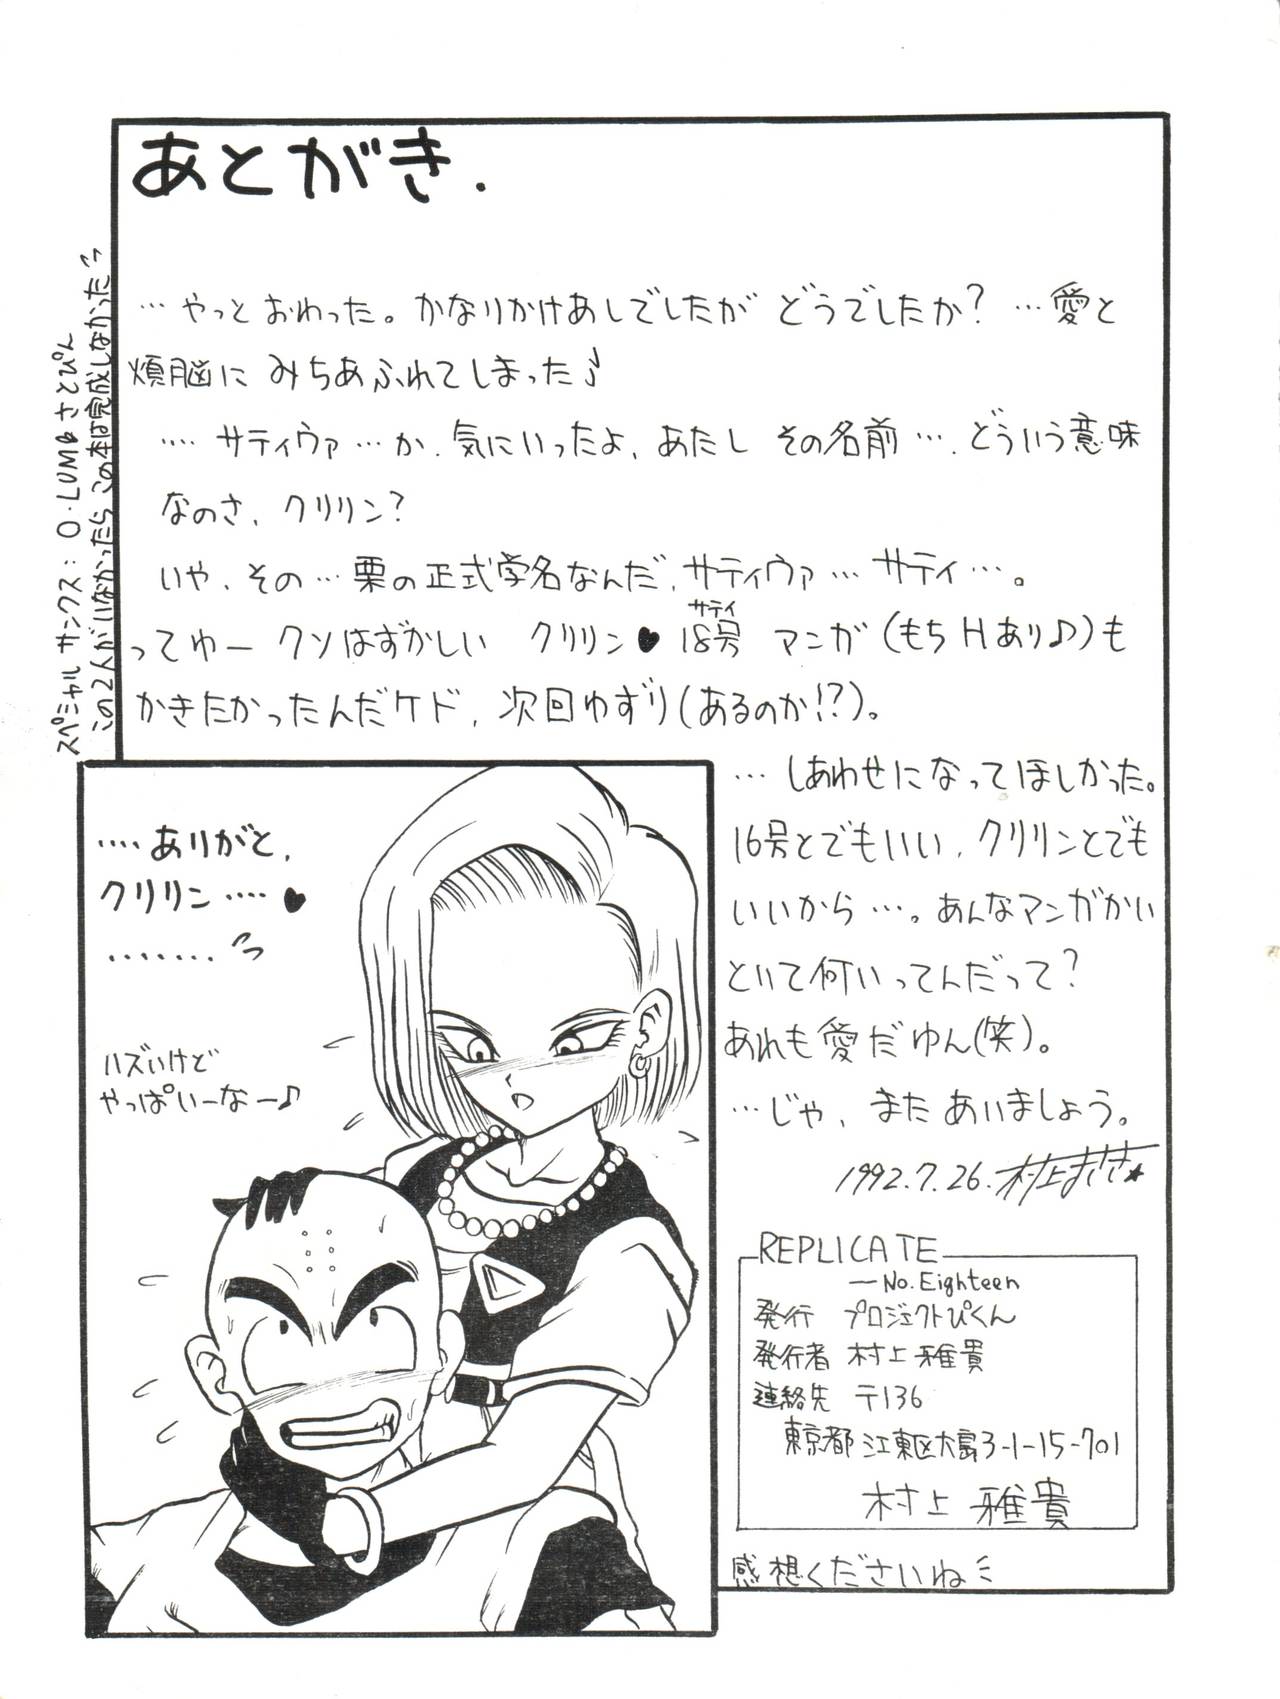 あとがき.
…やっとおわった。かなりかけあしでしたが どうでしたか？ …愛と
煩脳に みちあふれてしまった♪
…. サティヴァ …か. 気にいったよ, あたし その名前 …. どういう意味
なのさ, クリリン？
いや, その… 栗の正式学名なんだ, サティヴァ … サティ …。
ってゆー クソはずかしい クリリン♥18号 マンガ(もちHあり♪)も
サティ
かきたかったんだケド, 次回ゆずり(あるのか!?)。
… しあわせになってほしかった。
16号とでもいい, クリリンとでも
いいから …。あんなマンガかい
といて何いってんだって？
あれも愛だゆん(笑)。
…じゃ, また あいましょう。
1992.7.26. 村上まさき★
スペシャル サンクス: O・LUMs さとぴん
この2人がいなかったら この本は完成しなかった
‥‥ありがと,
クリリン ‥‥ ♥
‥‥‥‥
ハズいけど
やっぱいーなー♪
REPLICATE
—No. Eighteen
発行 プロジェクトぴくん
発行者 村上 雅貴
連絡先 〒136
東京都 江東区大島3-1-15-701
村上 雅貴
感想くださいね